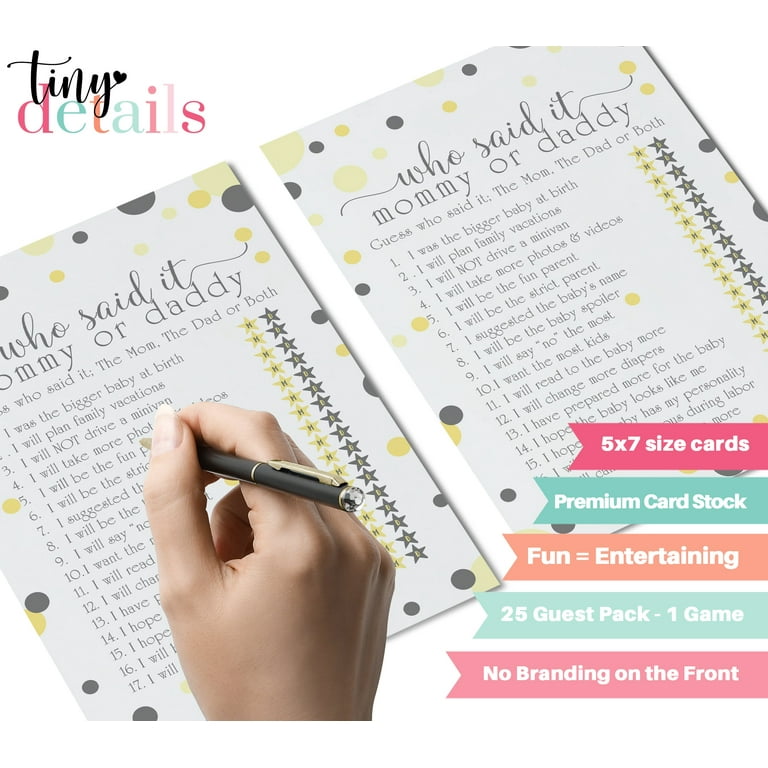 tiny
details
who said it
mommy or daddy
Guess who said it; The Mom, The Dad or Both
1. I was the bigger baby at birth
2. I will plan family vacations
3. I will NOT drive a minivan
4. I will take more photos & videos
5. I will be the fun parent
6. I will be the strict parent
7. I suggested the baby's name
8. I will be the baby spoiler
9. I will say "no" the most
10. I want the most kids
11. I will read to the baby more
12. I will change more diapers
13. I have prepared more for the baby
14. I hope the baby looks like me
15. I hope baby has my personality
16. I will during labor
17. I will
who said it
mommy or daddy
Guess who said it; The Mom, The Dad or Both
I was the bigger baby at birth
I will plan family vacations
I will NOT drive a minivan
4. I will take more videos
5. I will be the fun
6. I will be the strict
7. I suggested the
8. I will be the
9. I will say "no"
10. I want the
11. I will read
12. I will
13. I have
14. I hope
15. I hope
16. I will
17. I will
5x7 size cards
Premium Card Stock
Fun = Entertaining
25 Guest Pack - 1 Game
No Branding on the Front